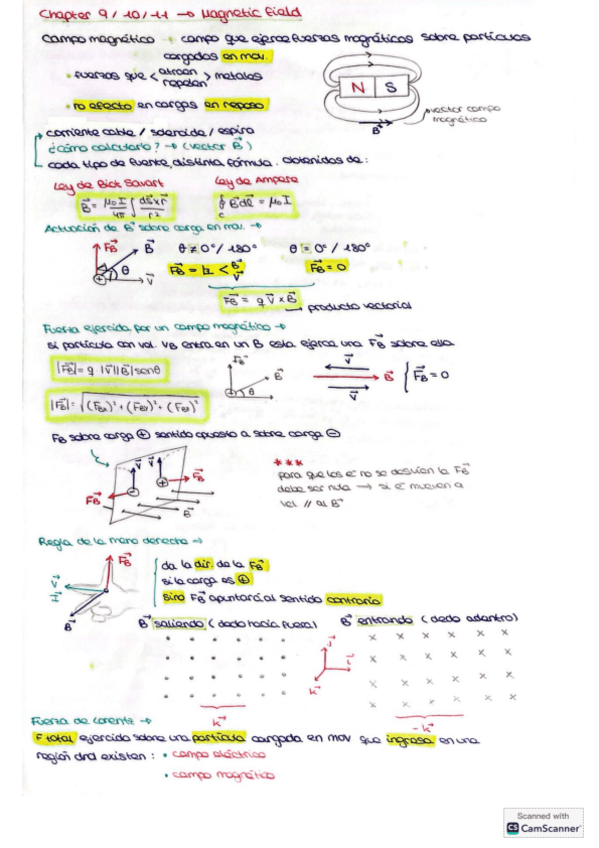 Chapter 9/10/11 → Magnetic Field
campo magnético → campo que ejerce fuerzas magnéticas sobre partículas
cargadas en mov.
• fuerzas que < atraen / repelen > metales
• no efecto en cargas en reposo
N S
vector campo magnético
B⃗
corriente cable / solenoide / espira
¿cómo calcularlo? → (vector B⃗)
cada tipo de fuente, distinta fórmula. obtenidos de:
Ley de Biot Savart
Ley de Ampere
B⃗ = μ₀I/4π ∫ ds⃗×r̂/r²
∮c B⃗dl⃗ = μ₀I
Actuación de B⃗ sobre carga en mov. →
F⃗B B⃗ θ V⃗ +
θ ≠ 0°/180°
θ = 0°/180°
F⃗B = ⊥ < B⃗ / V⃗
F⃗B = 0
F⃗B = q V⃗ × B⃗ → producto vectorial
Fuerza ejercida por un campo magnético →
si partícula con vel. VB entra en un B esta ejerce una F⃗B sobre ella
|F⃗B| = q |V⃗||B⃗| senθ
F⃗B B⃗ θ +
V⃗ B⃗ V⃗ { F⃗B = 0
|F⃗B| = √(FBx)² + (FBy)² + (FBz)²
FB sobre carga ⊕ sentido opuesto a sobre carga ⊖
V⃗ V⃗ F⃗B F⃗B B⃗
***
para que los e⁻ no se desvíen la F⃗B
debe ser nula → si e⁻ mueven a
vel // al B⃗
Regla de la mano derecha →
F⃗B V⃗ B⃗
da la dir. de la F⃗B
si la carga es ⊕
sino F⃗B apuntará al sentido contrario
B⃗ saliendo (dedo hacia fuera)
B⃗ entrando (dedo adentro)
k⃗
k⃗
-k⃗
Fuerza de Lorentz →
F total ejercido sobre una partícula cargada en mov que ingresa en una
región dnd existen: • campo eléctrico
• campo magnético
Scanned with
CS CamScanner